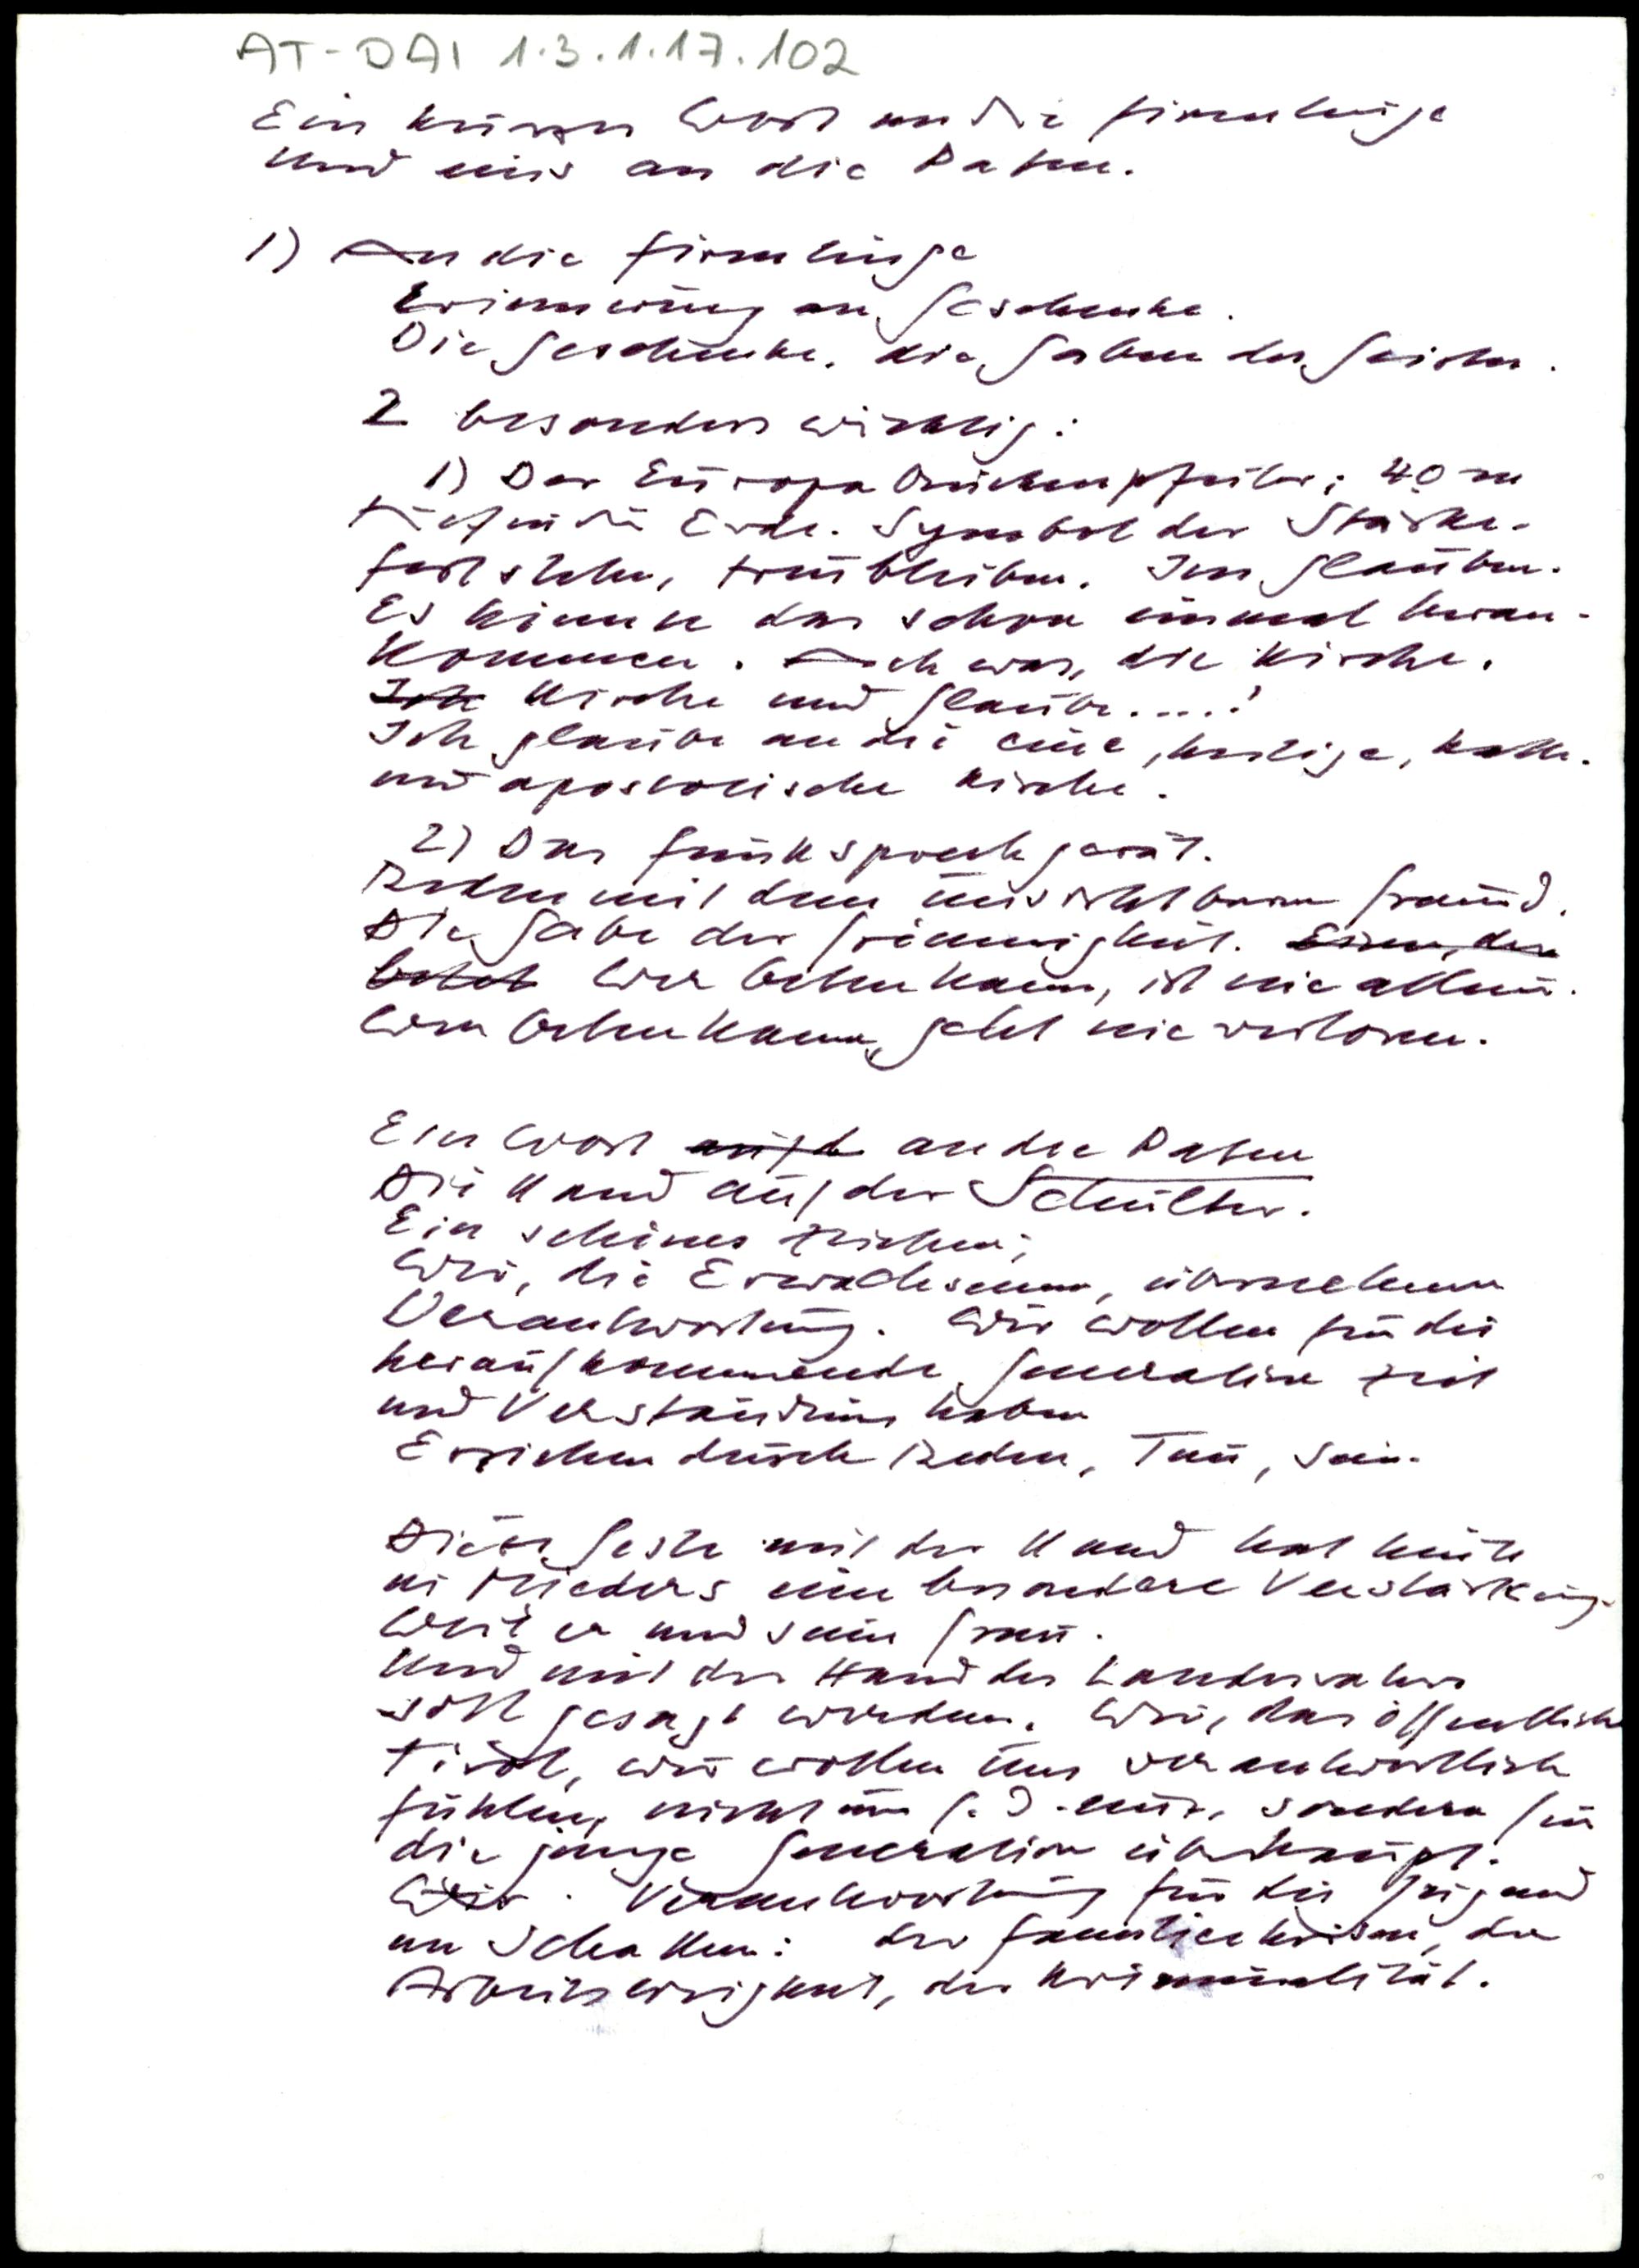 AT-DAI 1.3.1.17.102
Ein kurzes Wort an die Firmlinge
und eins an die Paten.
1) An die Firmlinge
Erinnerung an Geschenke.
Die Geschenke, die Gaben des Geistes.
2 besonders wichtig:
1) Der Europabrückenpfeiler; 40 m
tief in die Erde. Symbol der Stärke.
fest stehen, treu bleiben. Im Glauben.
Es könnte das schon einmal heran-
kommen. Ach was, die Kirche.
Ich Kirche und Glaube....!
Ich glaube an die eine, heilige, kath.
und apostolische Kirche.
2) Das Funksprechgerät.
Reden mit dem unsichtbaren Freund.
Die Gabe der Frömmigkeit. Einer, der
betet Wer beten kann, ist nie allein.
Wer beten kann, geht nie verloren.
Ein Wort auch an die Paten
Die Hand auf der Schulter.
Ein schönes Zeichen;
Wir, die Erwachsenen, übernehmen
Verantwortung. Wir wollen für die
heraufkommende Generation Zeit
und Verständnis haben
Erziehen durch Reden, Tun, Sein.
Diese Geste mit der Hand hat heute
in Mieders eine besondere Verstärkung.
Weil er und seine Frau.
Und mit der Hand des Landesvaters
soll gesagt werden. Wir, das öffentliche
Tirol, wir wollen uns verantwortlich
fühlen, nicht nur für sondern für
die junge Generation überhaupt.
Wir. Verantwortung für die Jugend
im Schatten: der Familienkrisen, der
Arbeitslosigkeit, der Kriminalität.